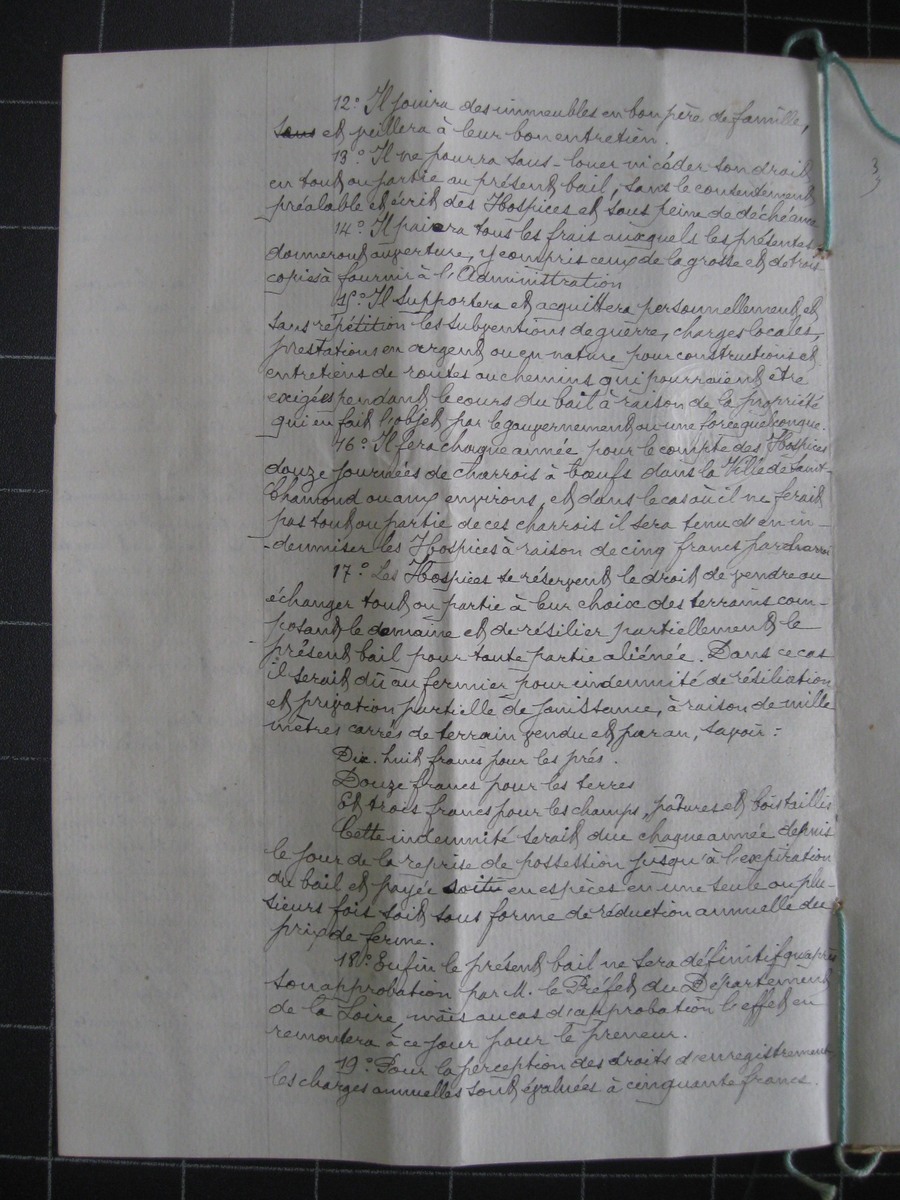 12° Il jouira des immeubles en bon père de famille,
sans et veillera à leur bon entretien.
13° Il ne pourra sous-louer ni céder son droit
en tout ou partie au présent bail, sans le consentement
préalable et écrit des Hospices et sous peine de déchéance
14° Il paiera tous les frais auxquels les présentes
donneront ouverture, y compris ceux de la grosse et de trois
copies à fournir à l'Administration
15° Il supportera et acquittera personnellement et
sans répétition les subventions de guerre, charges locales,
prestations en argent ou en nature pour constructions et
entretiens de routes ou chemins qui pourraient être
exigées pendant le cours du bail à raison de la propriété
qui en fait l'objet par le gouvernement ou une force quelconque.
16° Il fera chaque année pour le compte des Hospices
douze journées de charrois à bœufs dans la Ville de Saint-
Chamond ou aux environs, et dans le cas où il ne ferait
pas tout ou partie de ces charrois il sera tenu d'en in-
-demniser les Hospices à raison de cinq francs par charroi
17° Les Hospices se réservent le droit de vendre ou
échanger tout ou partie à leur choix des terrains com-
posant le domaine et de résilier partiellement le
présent bail pour toute partie aliénée. Dans ce cas
il serait dû au fermier pour indemnité de résiliation
et privation partielle de jouissance, à raison de mille
mètres carrés de terrain vendu et par an, savoir :
Dix-huit francs pour les prés.
Douze francs pour les terres
Et trois francs pour les champs, pâtures et bois taillis
Cette indemnité serait due chaque année depuis
le jour de la reprise de possession jusqu'à l'expiration
du bail et payée soit en espèces en une seule ou plu-
sieurs fois soit sous forme de réduction annuelle du
prix de ferme.
18° Enfin le présent bail ne sera définitif qu'après
son approbation par M. le Préfet du Département
de la Loire mais au cas d'approbation l'effet en
remontera à ce jour pour le preneur.
19° Pour la perception des droits d'enregistrement
les charges annuelles sont évaluées à cinquante francs.